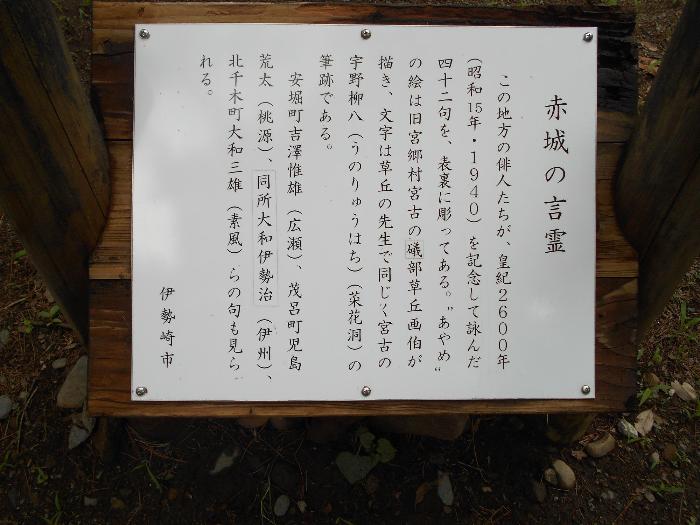 赤城の言霊
この地方の俳人たちが、皇紀2600年
(昭和15年・1940)を記念して詠んだ
四十二句を、表裏に彫ってある。"あやめ"
の絵は旧宮郷村宮古の礒部草丘画伯が
描き、文字は草丘の先生で同じく宮古の
宇野柳八(うのりゅうはち)(菜花洞)の
筆跡である。
安堀町吉澤惟雄(広瀬)、茂呂町児島
荒太(桃源)、同所大和伊勢治(伊州)、
北千木町大和三雄(素風)らの句も見ら
れる。
伊勢崎市